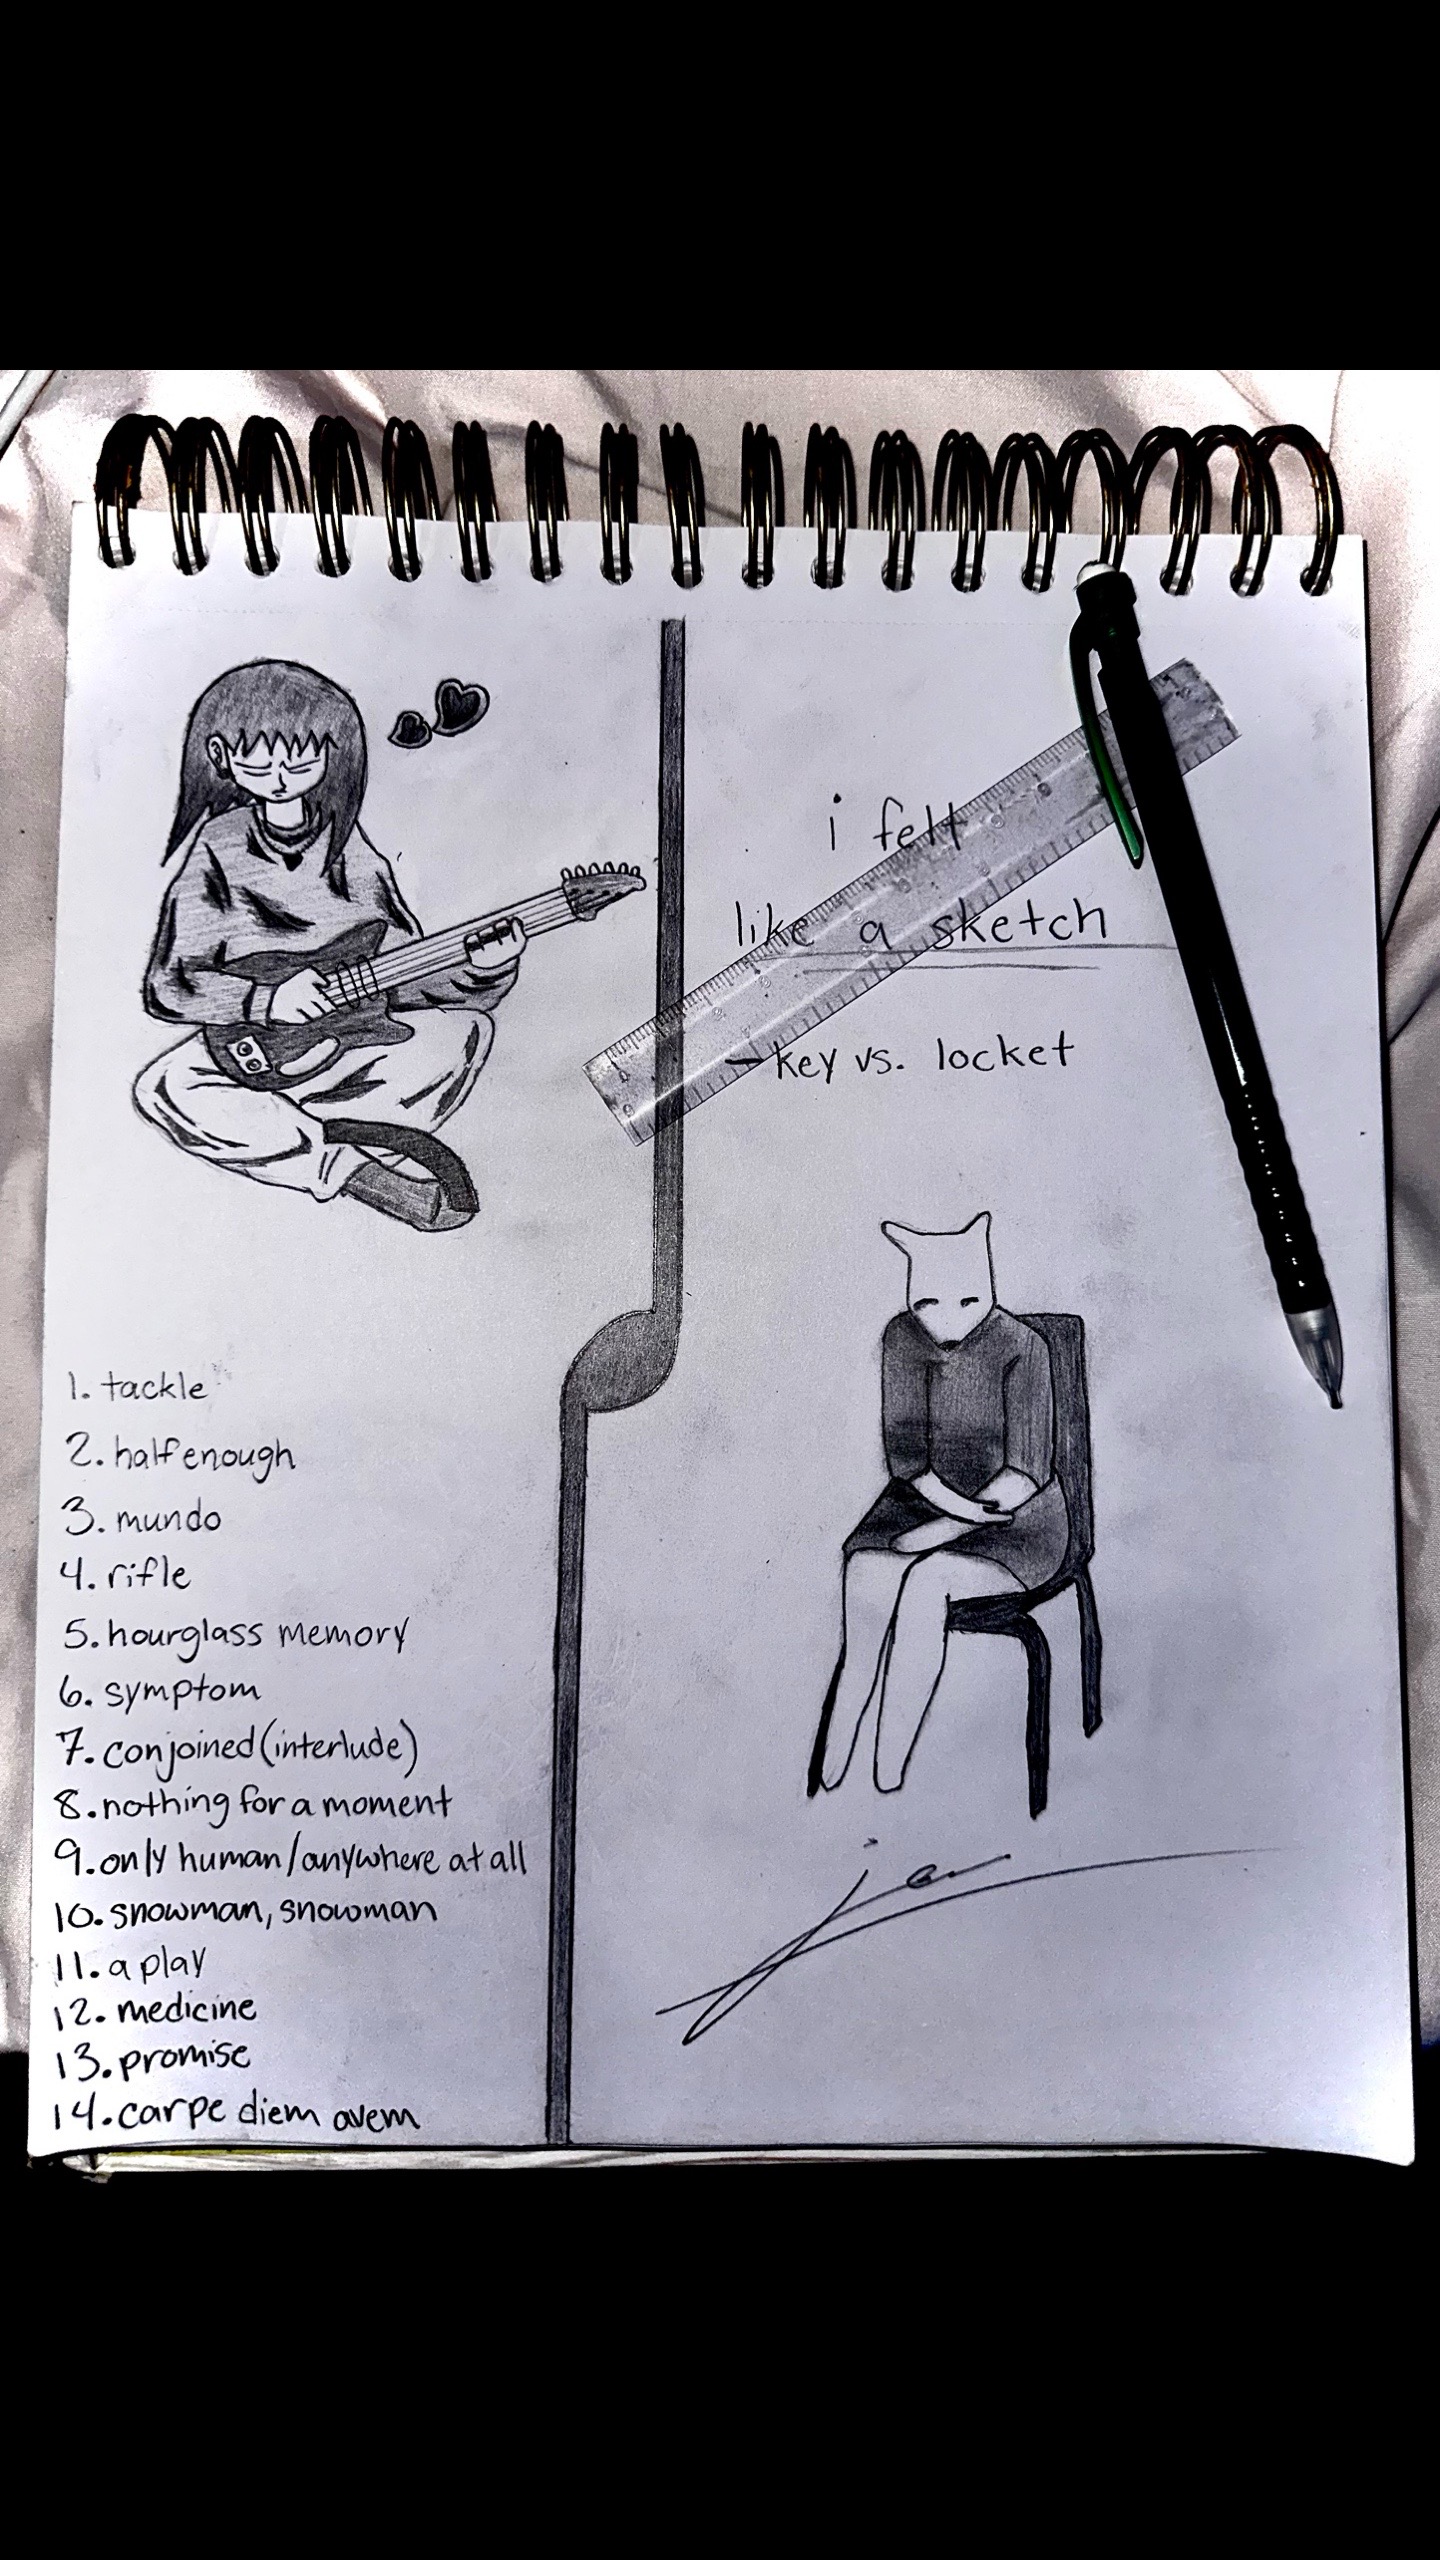 i felt
like a sketch
- key vs. locket
1. tackle
2. half enough
3. mundo
4. rifle
5. hourglass memory
6. symptom
7. conjoined (interlude)
8. nothing for a moment
9. only human/anywhere at all
10. snowman, snowman
11. a play
12. medicine
13. promise
14. carpe diem avem